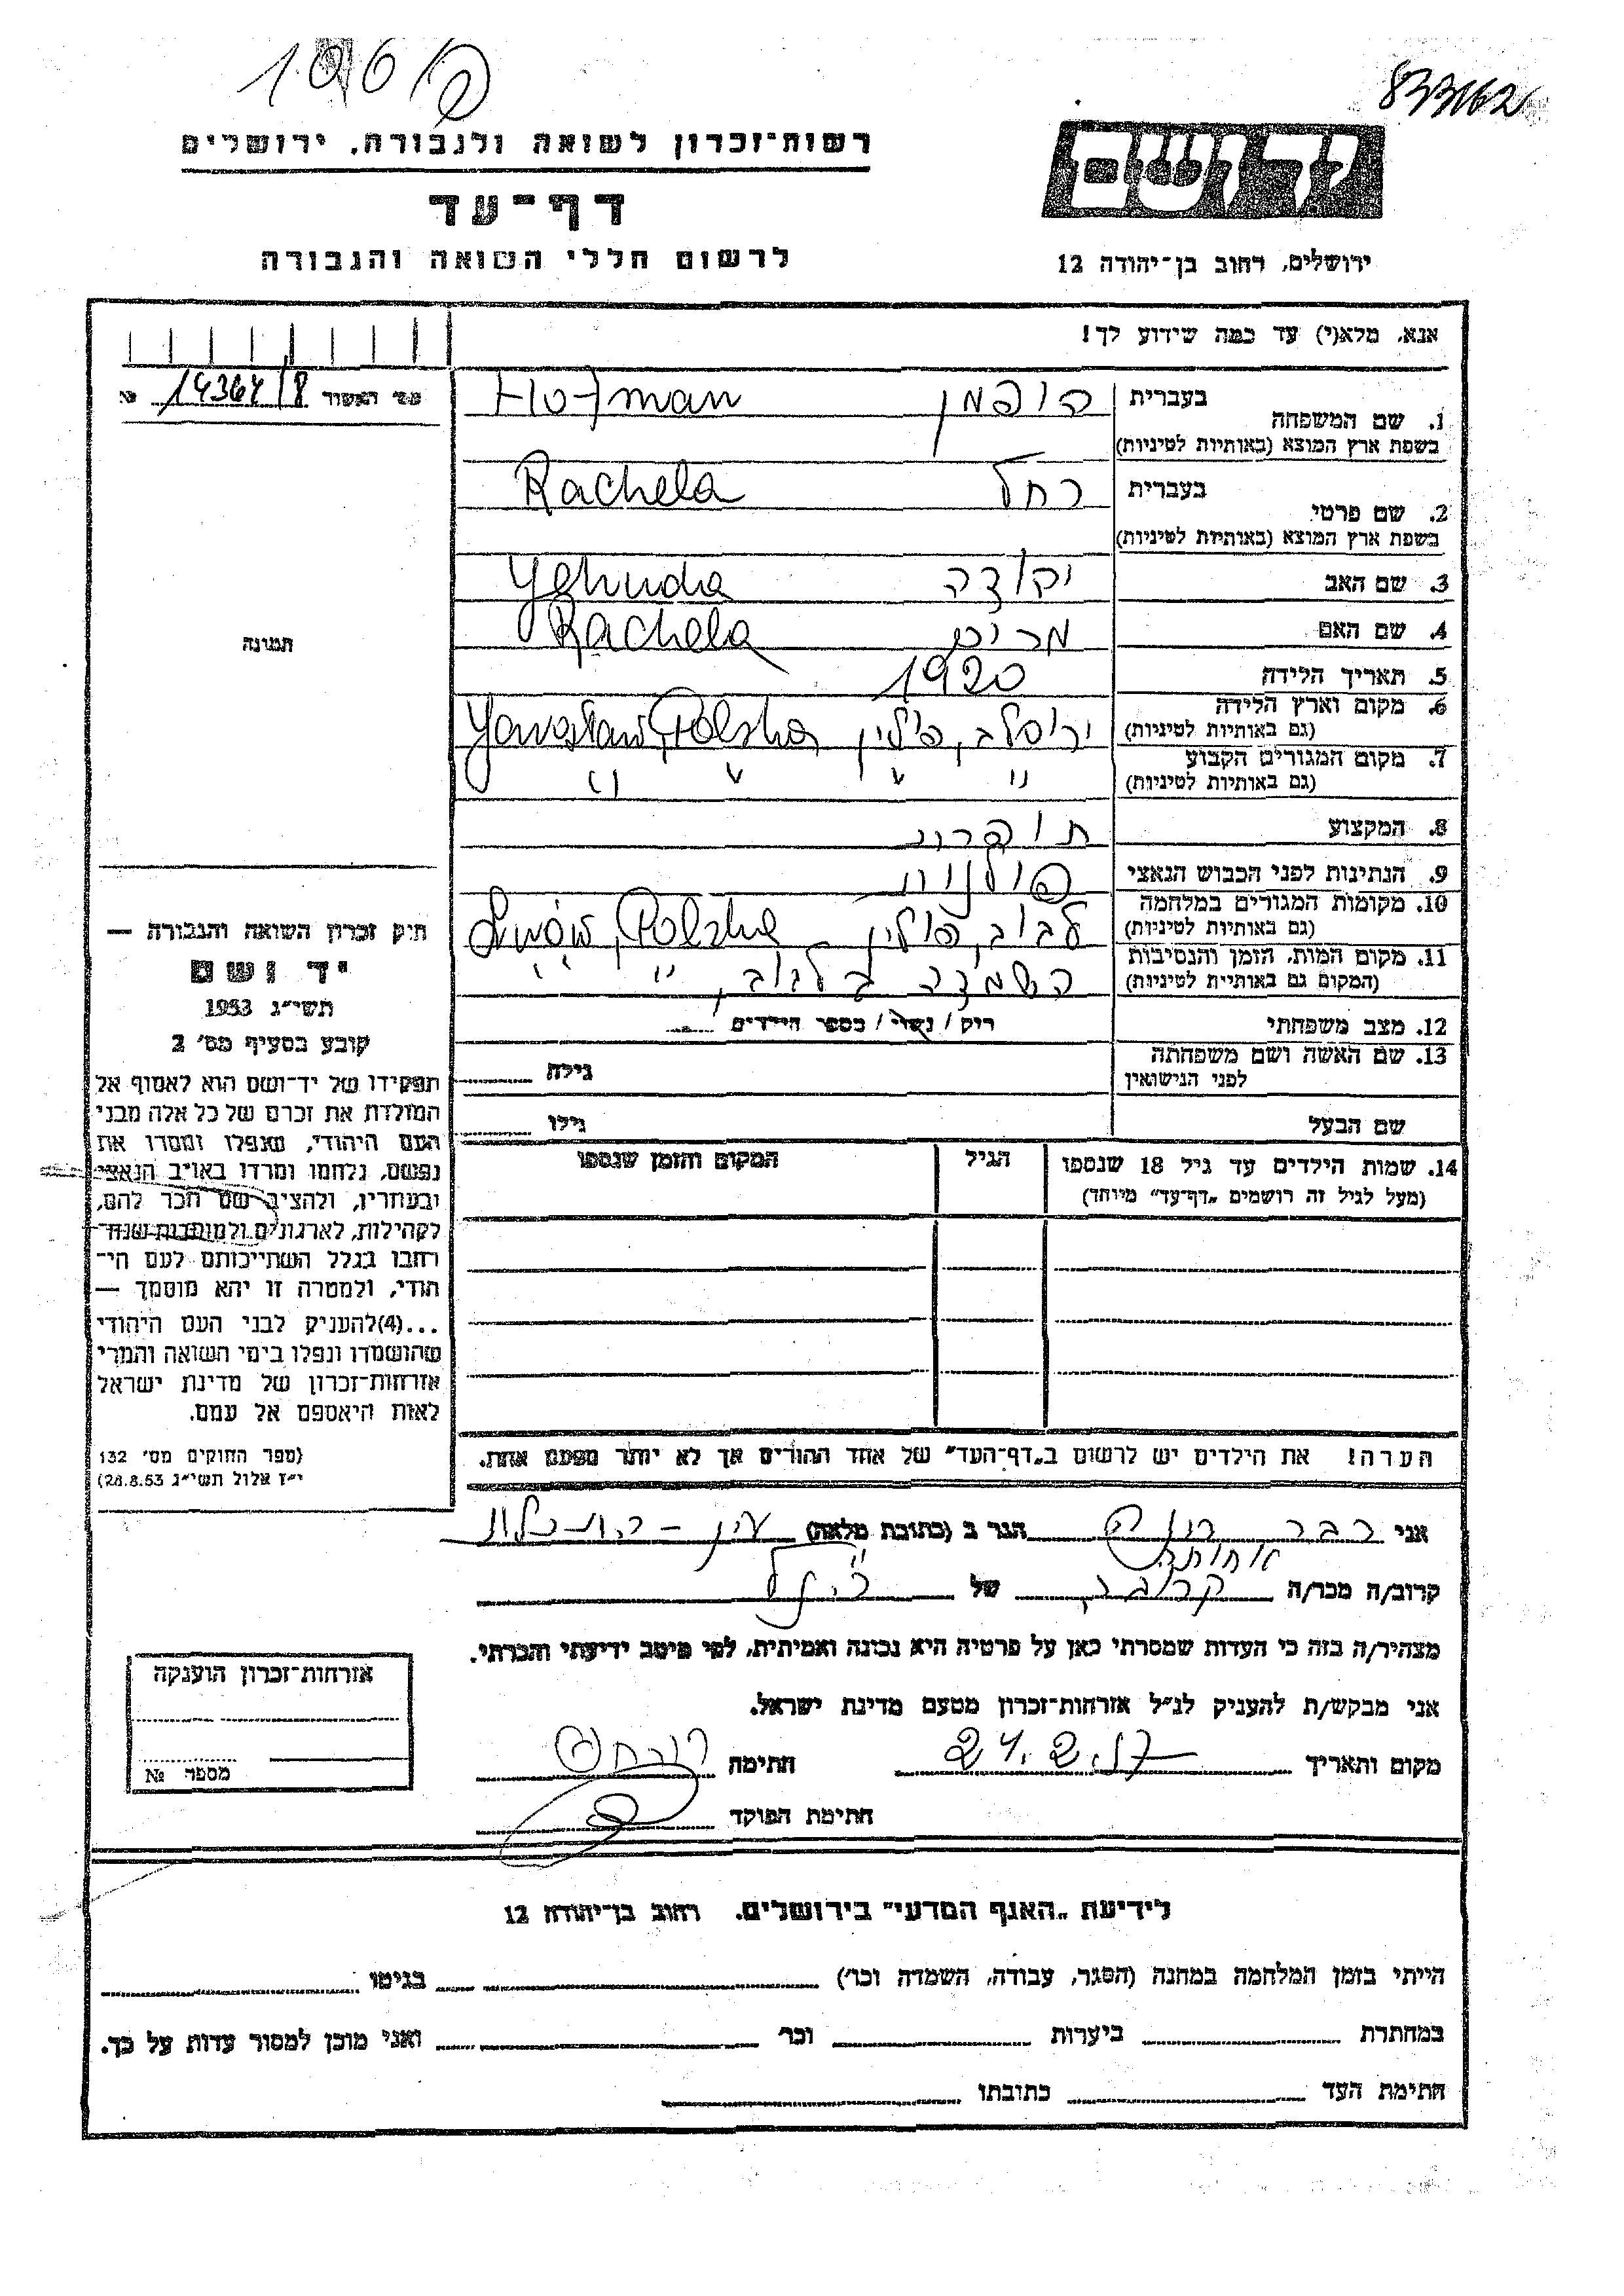 833162
רשות-זכרון לשואה ולגבורה, ירושלים
דף-עד
לרשום חללי השואה והגבורה
יד ושם
ירושלים, רחוב בן-יהודה 12
אנא, מלא(י) עד כמה שידוע לך!
מס' האשור 14364/8 №
1. שם המשפחה בעברית הופמן Hofman
בשפת ארץ המוצא (באותיות לטיניות)
2. שם פרטי בעברית רחל Rachela
בשפת ארץ המוצא (באותיות לטיניות)
3. שם האב יהודה Yehuda
4. שם האם מרים Rachela
5. תאריך הלידה 1920
6. מקום וארץ הלידה ירוסלב, פולין Yaroslaw, Polska
(גם באותיות לטיניות)
7. מקום המגורים הקבוע " " " "
(גם באותיות לטיניות)
8. המקצוע תופרת
9. הנתינות לפני הכבוש הנאצי פולנית
10. מקומות המגורים במלחמה לבוב, פולין Lwów, Polska
(גם באותיות לטיניות)
11. מקום המות, הזמן והנסיבות השמדה בלבוב, " "
(המקום גם באותיות לטיניות)
12. מצב משפחתי רוק / נשוי / מספר הילדים
13. שם האשה ושם משפחתה גילה
לפני הנישואין
שם הבעל גילו
14. שמות הילדים עד גיל 18 שנספו הגיל המקום והזמן שנספו
(מעל לגיל זה רושמים "דף-עד" מיוחד)
הערה! את הילדים יש לרשום ב"דף-העד" של אחד ההורים אך לא יותר מפעם אחת.
תמונה
חוק זכרון השואה והגבורה —
יד ושם
תשי"ג 1953
קובע בסעיף מס' 2
תפקידו של יד-ושם הוא לאסוף אל
המולדת את זכרם של כל אלה מבני
העם היהודי, שנפלו ומסרו את
נפשם, נלחמו ומרדו באויב הנאצי
ובעוזריו, ולהציב שם וזכר להם,
לקהילות, לארגונים ולמוסדות שנח־
רבו בגלל השתייכותם לעם הי־
הודי, ולמטרה זו יהא מוסמך —
...(4)להעניק לבני העם היהודי
שהושמדו ונפלו בימי השואה והמרי
אזרחות-זכרון של מדינת ישראל
לאות היאספם אל עמם.
(ספר החוקים מס' 132
י"ז אלול תשי"ג 28.8.53)
אני הגר ב (כתובת מלאה) עין-
אחותה
קרוב/ה מכר/ה קרובה של
מצהיר/ה בזה כי העדות שמסרתי כאן על פרטיה היא נכונה ואמיתית, לפי מיטב ידיעתי והכרתי.
אני מבקש/ת להעניק לנ"ל אזרחות-זכרון מטעם מדינת ישראל.
מקום ותאריך 24.2.57 חתימה
חתימת הפוקד
אזרחות-זכרון הוענקה
מספר №
לידיעת "האגף המדעי" בירושלים. רחוב בן-יהודה 12
הייתי בזמן המלחמה במחנה (הסגר, עבודה, השמדה וכו') בגיטו
במחתרת ביערות וכו' ואני מוכן למסור עדות על כך.
חתימת העד כתובתו